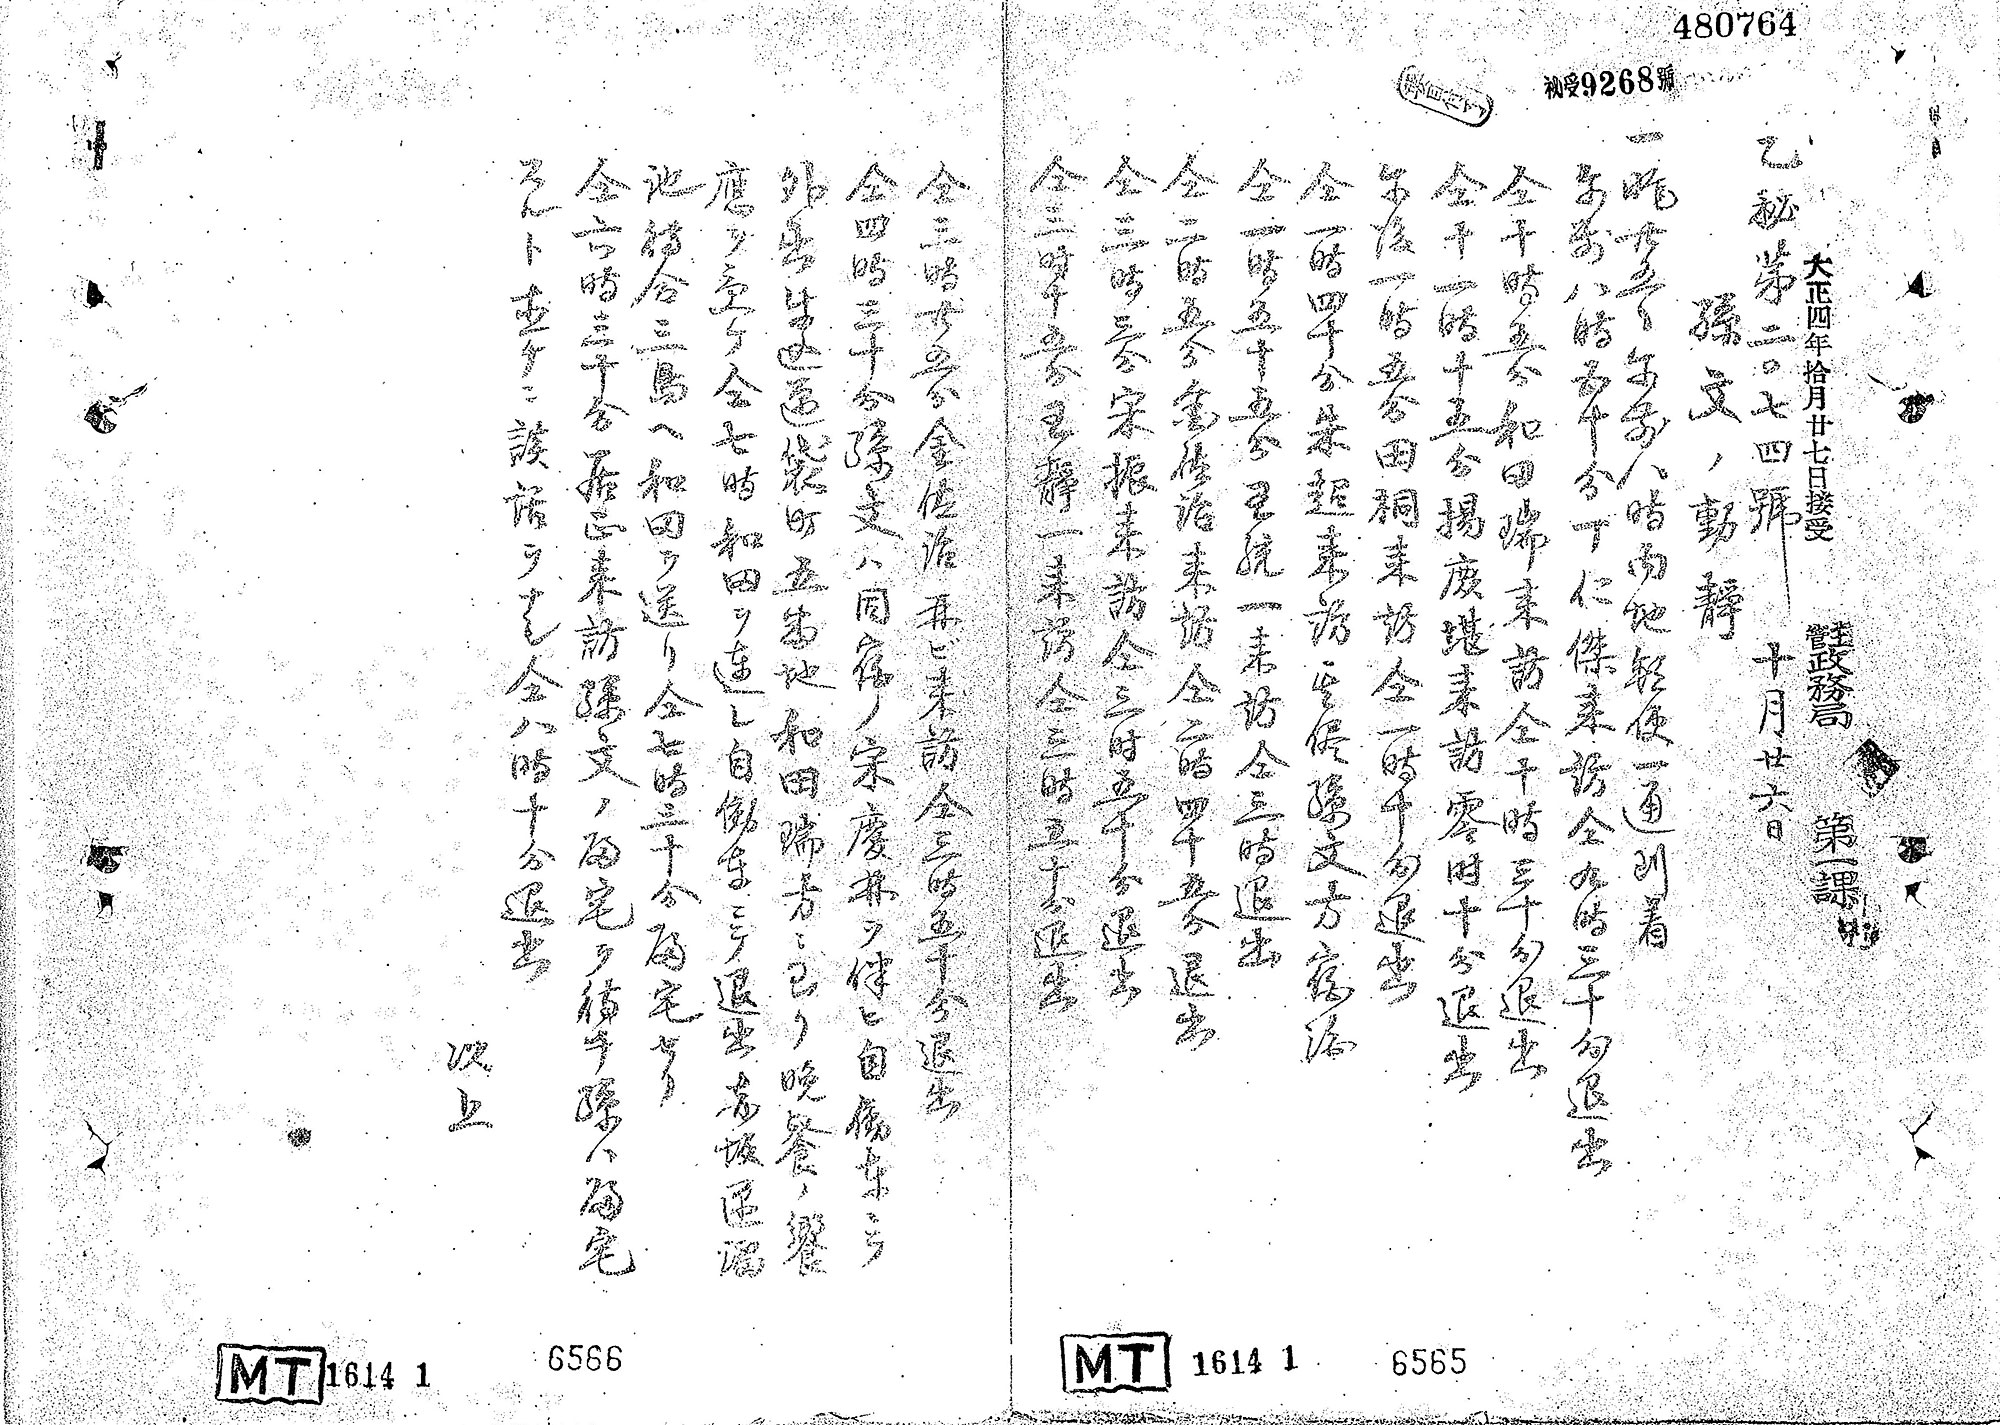 480764
秘受9268號
大正四年拾月廿七日接受
主管政務局 第一課
乙秘第二〇七四號 十月廿六日
孫文ノ動静
一昨廿五日午前八時内地郵便一通到着
午前八時五十分丁仁傑来訪仝九時三十分退出
仝十時五分和田瑞来訪仝十時三十分退出
仝十一時十五分揚廣堪来訪零時十分退出
午後一時五分田桐来訪仝一時十分退出
仝一時四十分朱超来訪其侭孫文方宿泊
仝一時五十五分王統一来訪仝三時退出
仝二時五分金佐治来訪仝二時四十五分退出
仝三時三分宋振来訪仝三時五十分退出
仝三時十五分王静一来訪仝三時五十分退出
仝三時廿五分金佐治再ビ来訪仝三時五十分退出
仝四時三十分孫文ハ同宿ノ宋慶林ヲ伴ヒ自働車ニテ
外出牛込区袋町五番地和田瑞方ニ到リ晩餐ノ饗
應ヲ受ケ仝七時和田ヲ連レ自働車ニテ退出赤坂区溜
池待合三島ヘ和田ヲ送リ仝七時三十分帰宅セリ
仝六時三十分居正来訪孫文ノ帰宅ヲ待チ孫ハ帰宅
スルト直ケニ談話ヲナシ仝八時十分退出
以上
MT 1614 1 6565
MT 1614 1 6566